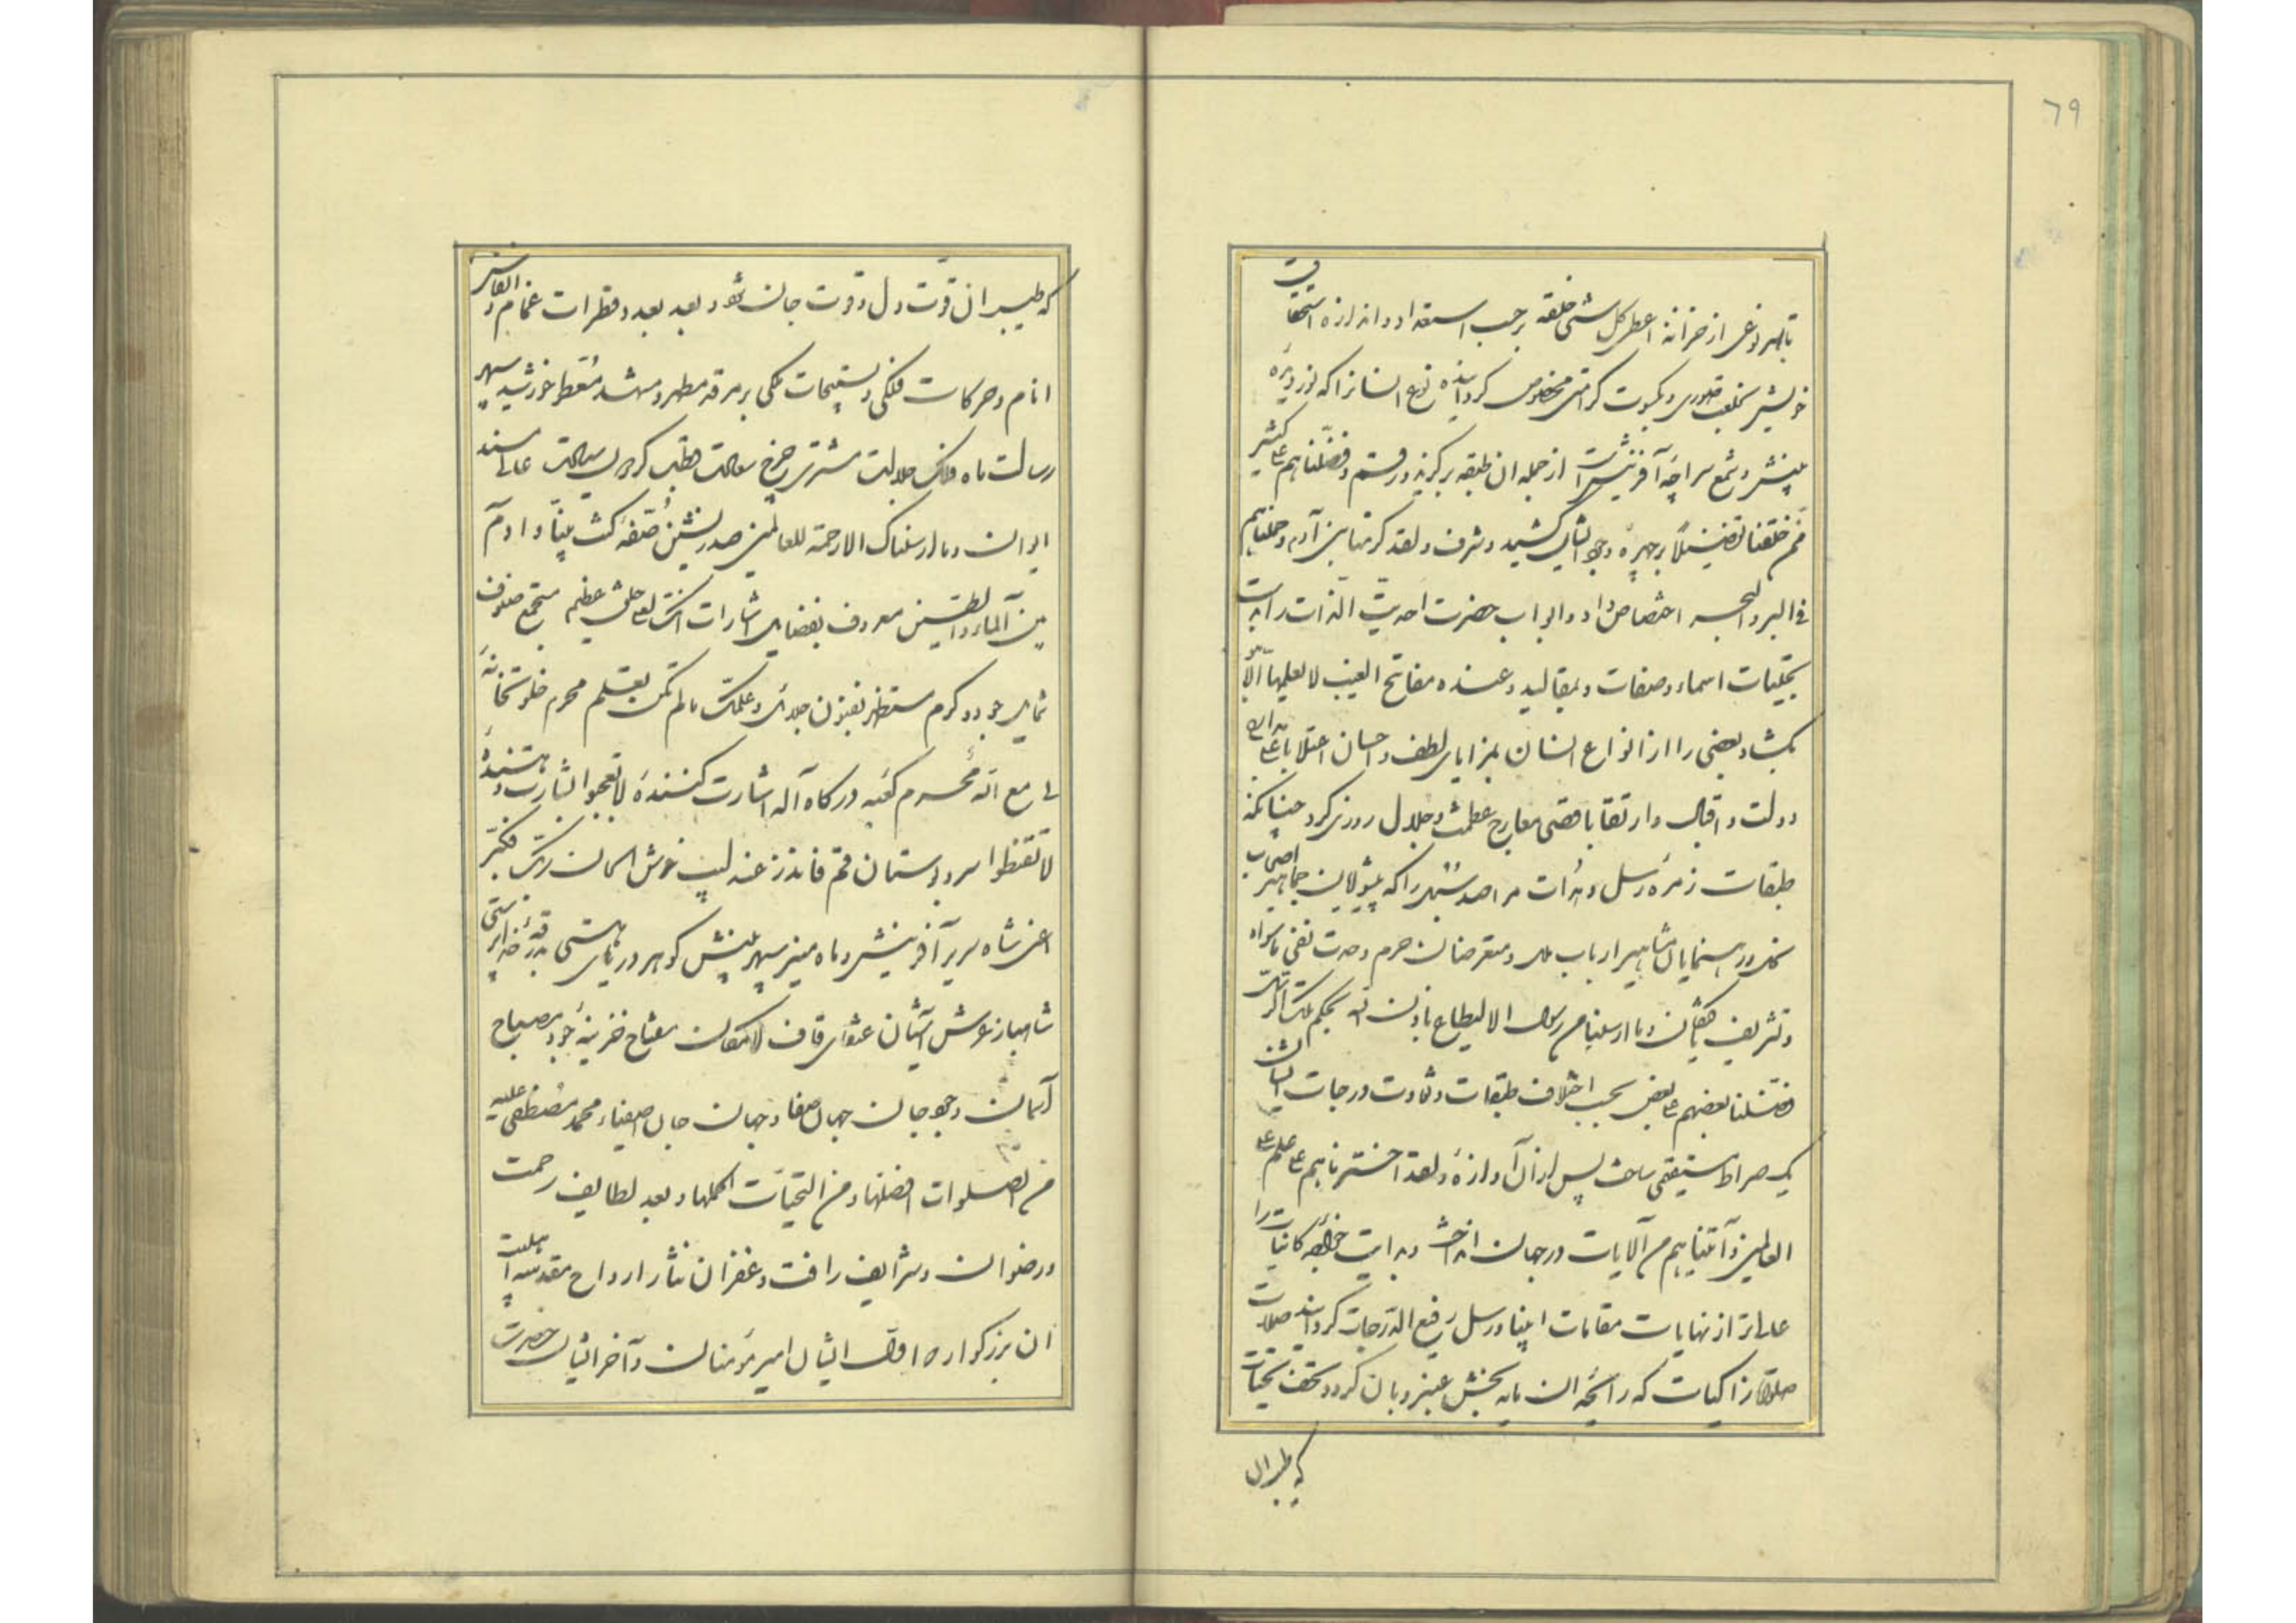 ٦٩
از خزانه اعطی کل شی خلقه بر حسب استعداد و اندازه استحقاقیت
خویش بخلعت ظهوری و بکسوت کرامتی مخصوص کردانیده نوع انسانرا که نور دیدهٔ
بینش و شمع سراچهٔ آفرینش است از جمله ان طبقه برکزیده رقم و فضلناهم علی کثیر
ممن خلقنا تفضیلاً بر چهرهٔ وجود ایشان کشید و شرف و لقد کرمنا بنی آدم و حملناهم
فی البر و البحر اختصاص داد و ابواب حضرت احدیّت الذات را به
تجلیات اسماء و صفات و بمقالید و عنده مفاتح الغیب لا یعلمها الّا هو
بکشاد بعضی را از انواع انسان بمزایای لطف و احسان اعتلا باعلی مدارج
دولت و اقبال و ارتقا باقصی معارج عظمت و جلال روزی کرد چنانکه
طبقات زمرهٔ رسل و هدات مراصد سبل را که پیشوایان جماهیر اصحاب
و رهنمایان مشاهیر ارباب ملل و متعرضان حرم وحدت نفی ماسواه
و تشریف و ما ارسلنا من رسول الا لیطاع باذن الله بحکم تلک الرسل
فضلنا بعضهم علی بعض بحسب اختلاف طبقات و تفاوت درجات ایشان
یک صراط مستقیم ساخت پس از آن آوازهٔ و لقد اخترناهم علی علم علی
العالمین و آتیناهم من الآیات در جهان انداخت و بدایت خواجه کاینات را
عالی‌تر از نهایات مقامات انبیا و رسل رفیع الدرجات کردانید صلات
صلوات زاکیات که رایحهٔ ان مایه بخش عنبر و بان کردد و تحف تحیات
که طیران
که طیران قوت دل و قوت جان شود بعدد قطرات غمام و انفاس
انام و حرکات فلکی و تسبیحات ملکی بر مرقد مطهر و مشهد معطر خورشید سپهر
رسالت ماه فلک جلالت مشتری چرخ سعادت قطب کردون سیادت عالی مسند
ایوان و ما ارسلناک الا رحمة للعالمین صدرنشین صفهٔ کنت نبیّاً و ادم
بین الماء و الطین معروف بفضایل اشارات انک لعلی خلق عظیم مستجمع صنوف
شمایل جود و کرم مستظهر بفنون جلایل و علمک ما لم تکن تعلم محرم خلوتخانهٔ
لی مع الله محرم کعبه درکاه آله اشارت کنندهٔ بشارت دهندهٔ
لا تقنطوا سرو بوستان قم فانذر عندلیب خوش الحان ربک فکبّر
اعنی شاه سریر آفرینش و ماه منیر سپهر بینش کوهر دریای هستی
شاهباز عرش آشیان عنقای قاف لامکان مفتاح خزینهٔ جود مصباح
آسمان وجود جان جهان صفا و جهان جان اصفیاء محمد مصطفی علیه
من الصلوات افضلها و من التحیات اکملها و بعد لطایف رحمت
و رضوان و شرایف رافت و غفران نثار ارواح مقدسه اهلبیت
ان بزرکوار که اول ایشان امیر مؤمنان و آخر ایشان حضرت